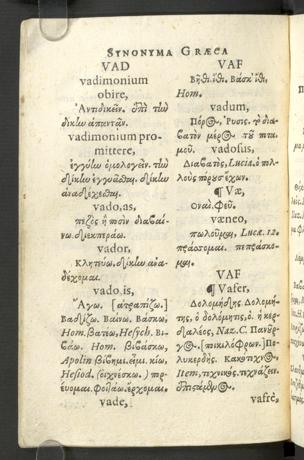 SYNONYMA GRÆCA
VAD
vadimonium
obire,
Ἀντιδικεῖν. ἐπὶ τὴν
δίκην ἀπαντᾶν.
vadimonium pro-
mittere,
ἐγγύην ὁμολογεῖν. τὴν
δίκην
vado, as,
πεζὸς ἢ ποσὶν διαβαί-
νω. διεκπεράω.
vador,
Κλητεύω, δίκην ἀνα-
δέχομαι.
vado, is,
Ἄγω. [ἀτραπίζω.]
Βαδίζω. Βαίνω. Βάσκω,
Hom. βατέω, Hesych. Βι-
βάω. Hom. βιβάσκω,
Apolin εἶμι. κίω,
Hesiod. (οἰχνέσκω.) πο-
ρέυομαι. Φοιτάω. ἔρχομαι.
vade,
VAF
Βῆθι. ἴθι. Βάσκ' ἴθι,
Hom.
vadum,
Πόρος, Ρυσις. ἡ δια-
βατὸν μέρος τοῦ ποτα-
μοῦ. vadosus,
Διαβατὸς, Lucia. ὁ πολ-
λοὺς πόρους ἔχων.
¶ Væ,
Οναὶ. Φεῦ.
væneo,
πωλοῦμαι, Luc. 12.
πιπράσκομαι. πεπράσκο-
μαι.
VAF
¶ Vafer,
Δολομήδης. Δολομή-
της, ὁ δολόμητις, ὁ, ἡ κερ-
δαλέος, Naz. C. Πανοῦρ-
γος. [ποικιλόφρων.] Πο-
λυκερδής. Κακοτέχνος.
Item, τεχνικὸς. τεχνάζων.
vafrè,